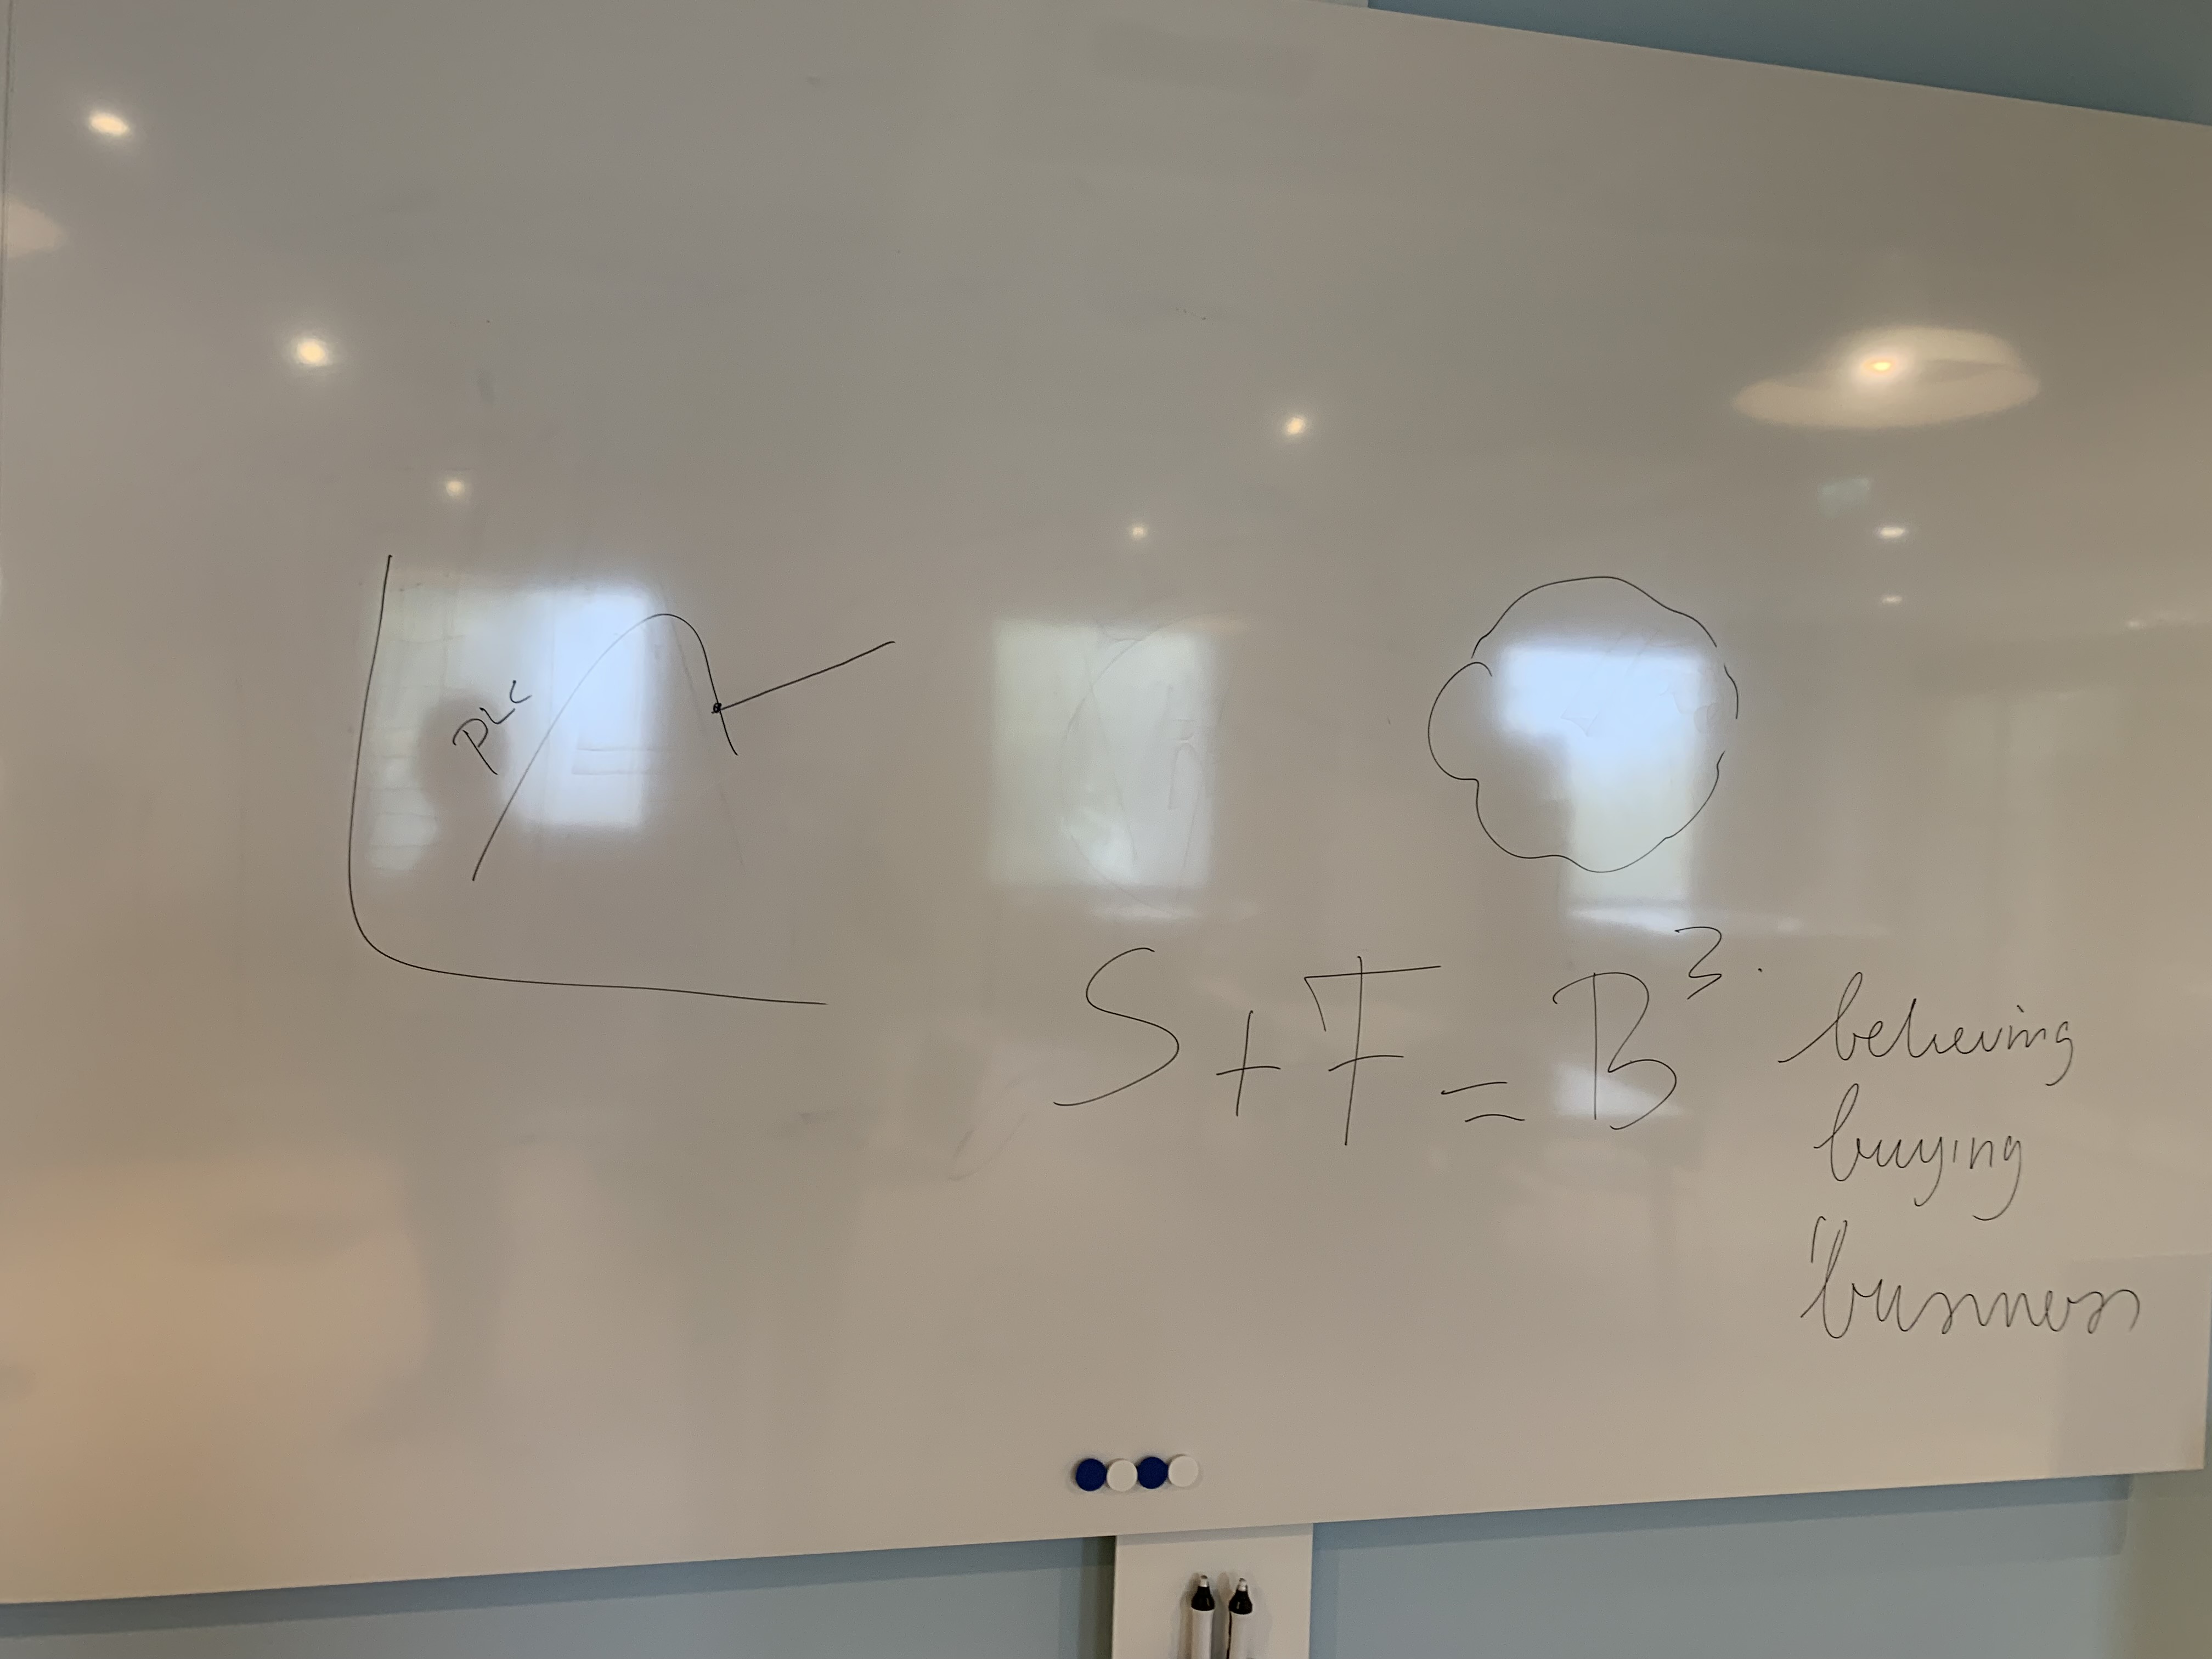 PLC
S + F = B³
believing
buying
business